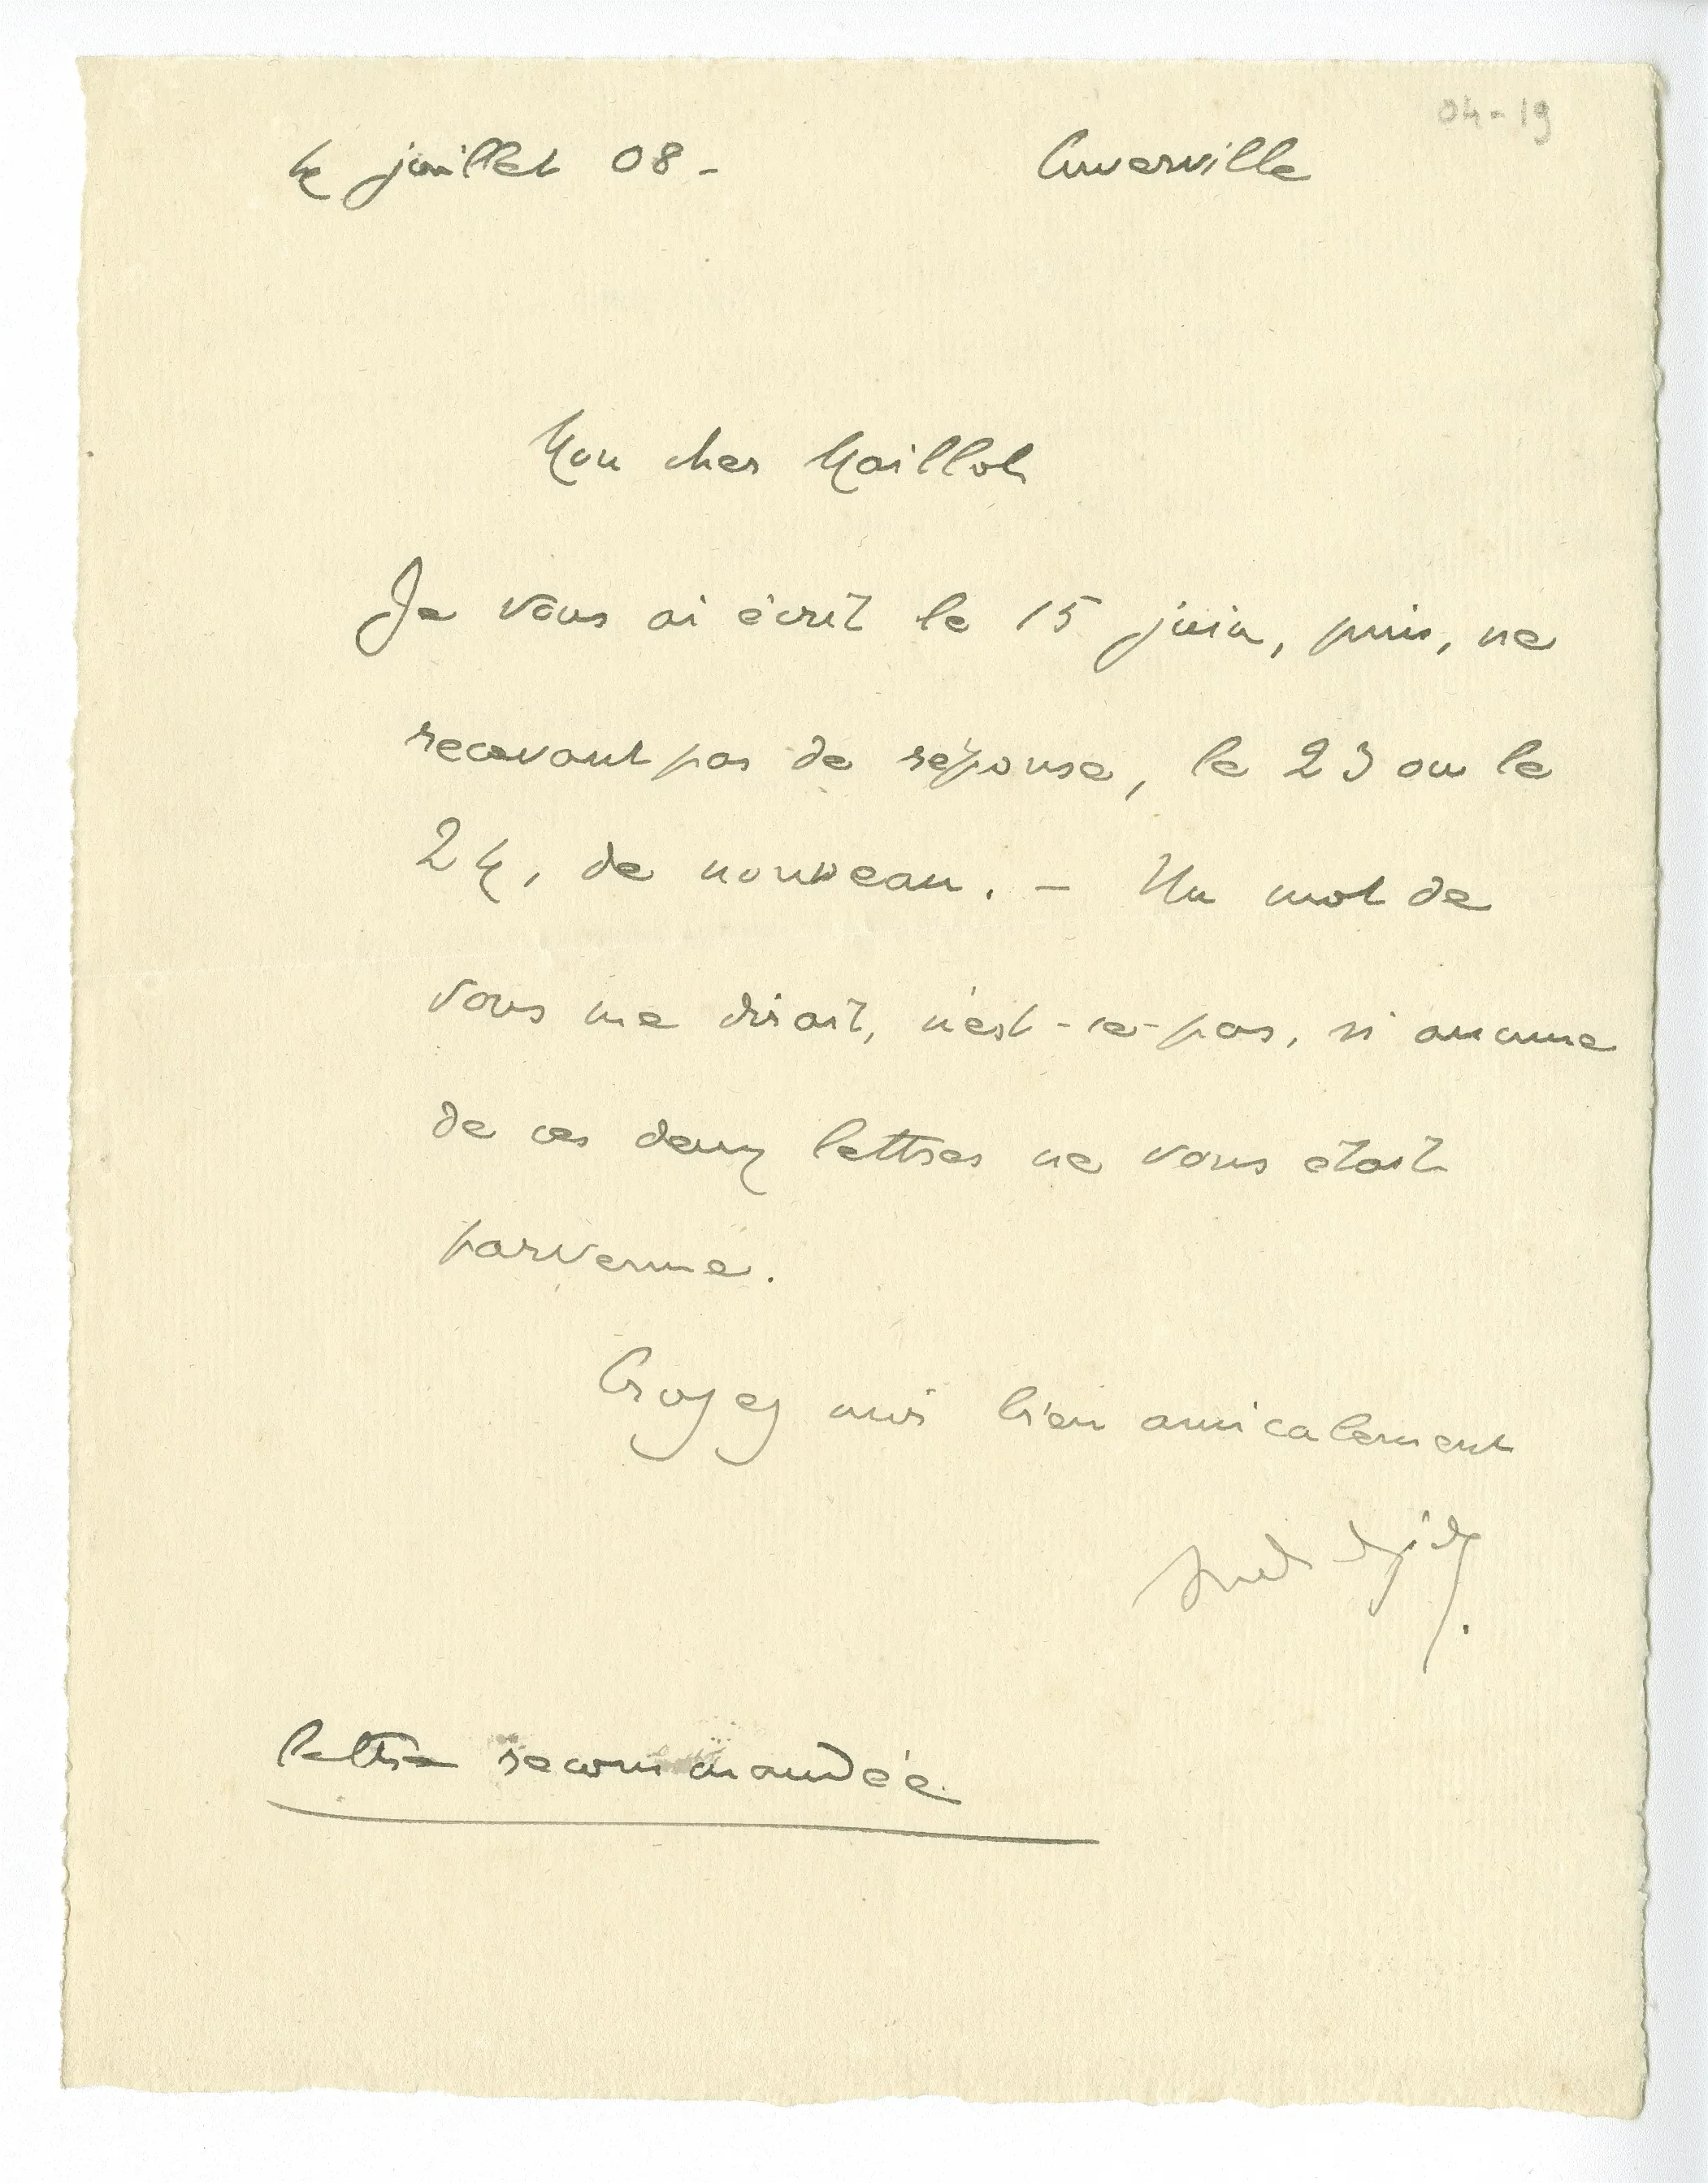 04-19
4 juillet 08 - Cuverville
Mon cher Maillol
Je vous ai écrit le 15 juin, puis, ne
recevant pas de réponse, le 23 ou le
24, de nouveau. - Un mot de
vous me dirait, n'est-ce-pas, si aucune
de ces deux lettres ne vous était
parvenue.
Croyez moi bien amicalement
André Gide.
lettre recommandée